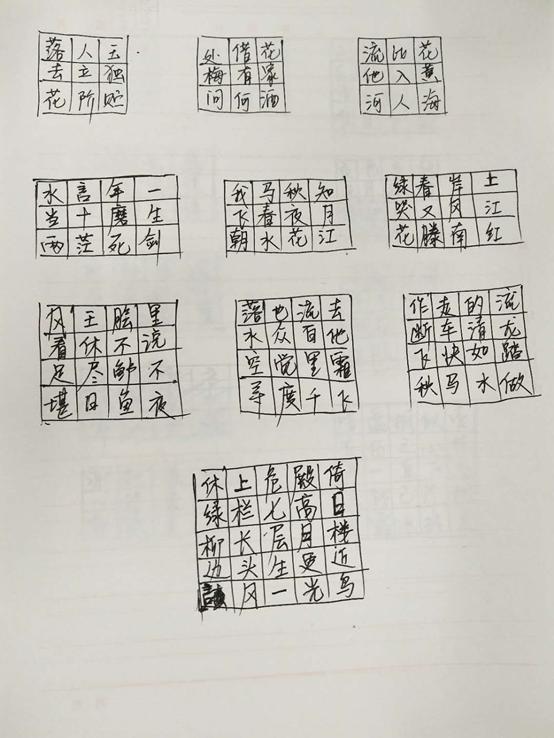 落人玉
去立独
花阶
处借花
梅有家
问何酒
流比花
他入黄
河人海
水言年一
当十磨生
两茫死剑
我马秋知
飞春夜月
朝水花江
绿春岸土
哭又风江
花滕南红
风王脍里
看休不浣
足尽鲈不
堪日鱼夜
落也流去
水众百他
空觉里霜
寻度千飞
作走的流
断车清龙
飞快如踏
秋马水做
休上危殿倚
绿栏七高日
柳长层月楼
边头生更近
风一光鸟